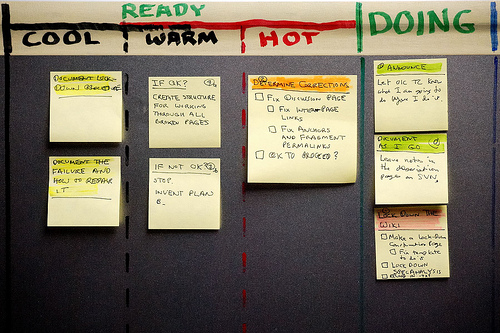 READY
COOL
WARM
HOT
DOING
DOCUMENT LOCK-
DOWN PROCEDURE
DOCUMENT THE
FAILURE AND
HOW TO REPAIR
IT
IF OK?
CREATE STRUCTURE
FOR WORKING
THROUGH ALL
BROKEN PAGES
IF NOT OK?
STOP.
INVENT PLAN
B.
DETERMINE CORRECTIONS
FIX DISCUSSION PAGE
FIX INTER-PAGE
LINKS
FIX ANCHORS
AND FRAGMENT
PERMALINKS
OK TO PROCEED?
ANNOUNCE
Let OTC TL know
what I am going to
do before I do it.
DOCUMENT
AS I GO
Leave notes in
the
page on SVN.
LOCK DOWN THE
WIKI
Make a Lock-Down
Page
Fix template
to do it
LOCK DOWN